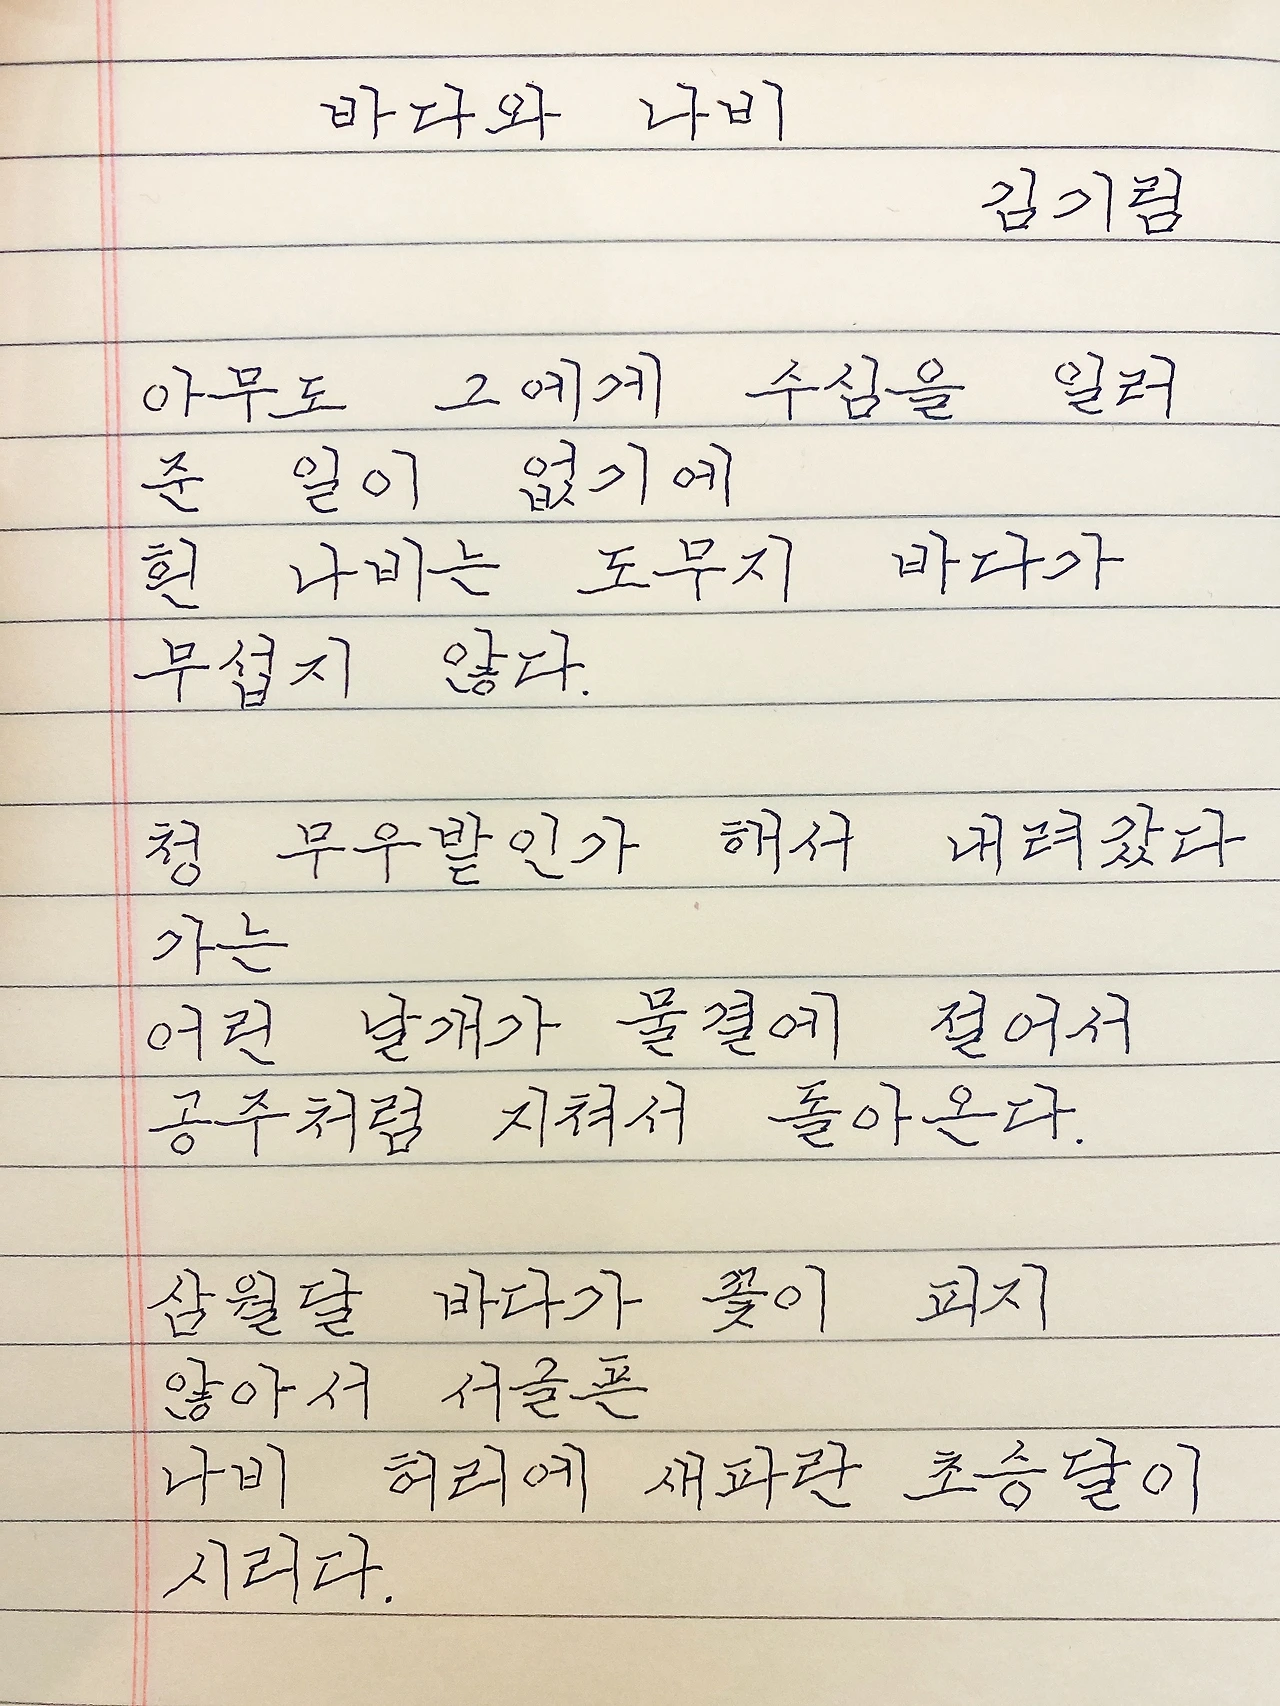 바다와 나비
김기림
아무도 그에게 수심을 일러
준 일이 없기에
흰 나비는 도무지 바다가
무섭지 않다.
청 무우밭인가 해서 내려갔다
가는
어린 날개가 물결에 절어서
공주처럼 지쳐서 돌아온다.
삼월달 바다가 꽃이 피지
않아서 서글픈
나비 허리에 새파란 초승달이
시리다.